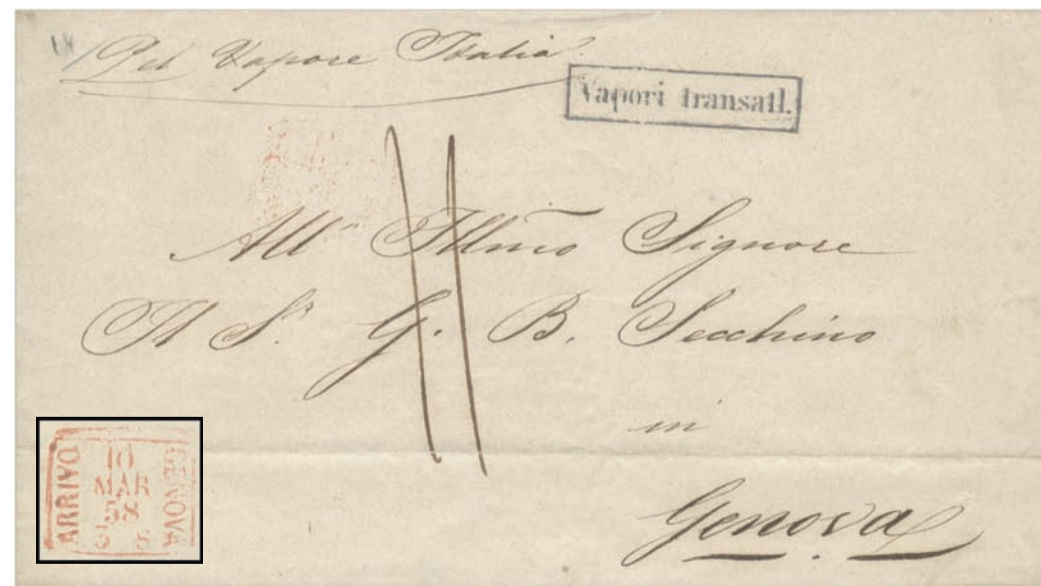 Pel Vapore Italia
Vapori transatl.
11
All' Illm̃o Signore
Il Sr. G. B. Secchino
in
Genova
ARRIVO
10
MAR
58
GENOVA